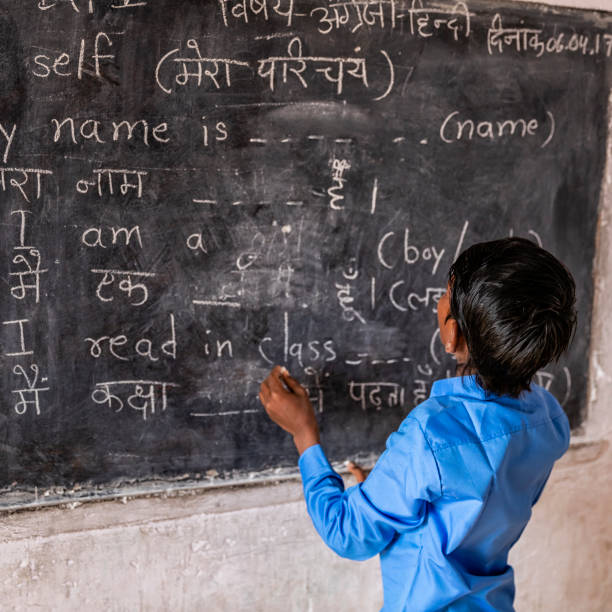 विषय-अंग्रेजी-हिन्दी दिनांक 06.04.17
self (मेरा पारिचय)
y name is _ _ _ _ _ _ (name)
रा नाम _ _ _ _ _ है।
I am a (boy/
मैं एक _ _ हूँ। (ल
I read in class _ _ _ _ (
मैं कक्षा _ _ में पढ़ता हूँ